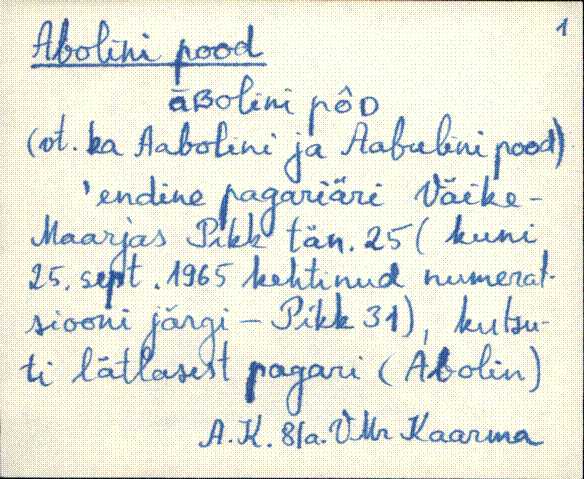 1
Abolini pood
āʙolini pôᴅ
(vt. ka Aabolini ja Aabulini pood)
'endine pagariäri Väike-
Maarjas Pikk tän. 25 (kuni
25. sept. 1965 kehtinud numerat-
siooni järgi – Pikk 31), kutsu-
ti lätlasest pagari (Abolin)
A.K. 81a. VMr Kaarma